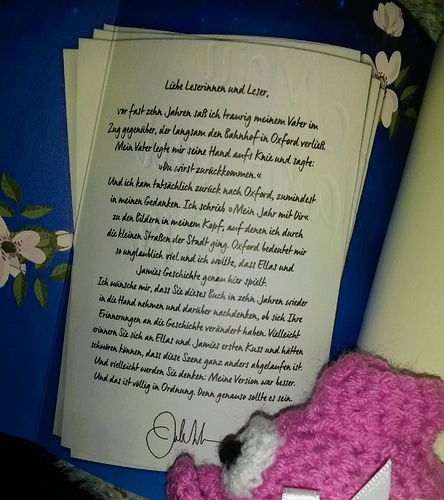 Liebe Leserinnen und Leser,
vor fast zehn Jahren saß ich traurig meinem Vater im
Zug gegenüber, der langsam den Bahnhof in Oxford verließ.
Mein Vater legte mir seine Hand aufs Knie und sagte:
»Du wirst zurückkommen.«
Und ich kam tatsächlich zurück nach Oxford, zumindest
in meinen Gedanken. Ich schrieb »Mein Jahr mit Dir«
zu den Bildern in meinem Kopf, auf denen ich durch
die kleinen Straßen der Stadt ging. Oxford bedeutet mir
so unglaublich viel und ich wollte, dass Ellas und
Jamies Geschichte genau hier spielt.
Ich wünsche mir, dass Sie dieses Buch in zehn Jahren wieder
in die Hand nehmen und darüber nachdenken, ob sich Ihre
Erinnerungen an die Geschichte verändert haben. Vielleicht
erinnern Sie sich an Ellas und Jamies ersten Kuss und hätten
schwören können, dass diese Szene ganz anders abgelaufen ist.
Und vielleicht werden Sie denken: Meine Version war besser.
Und das ist völlig in Ordnung. Denn genauso sollte es sein.